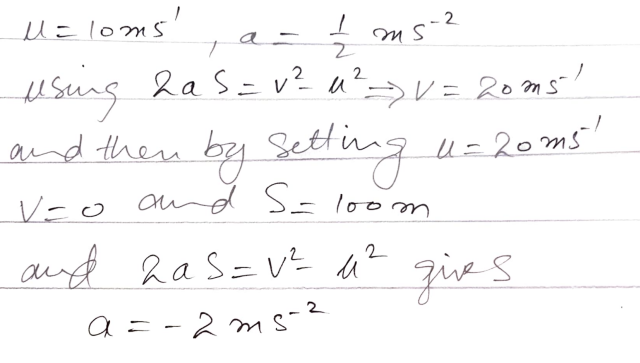 u = 10 ms⁻¹, a = 1/2 ms⁻²
using 2aS = v² - u² ⇒ v = 20 ms⁻¹
and then by setting u = 20 ms⁻¹
v = 0 and S = 100 m
and 2aS = v² - u² gives
a = -2 ms⁻²